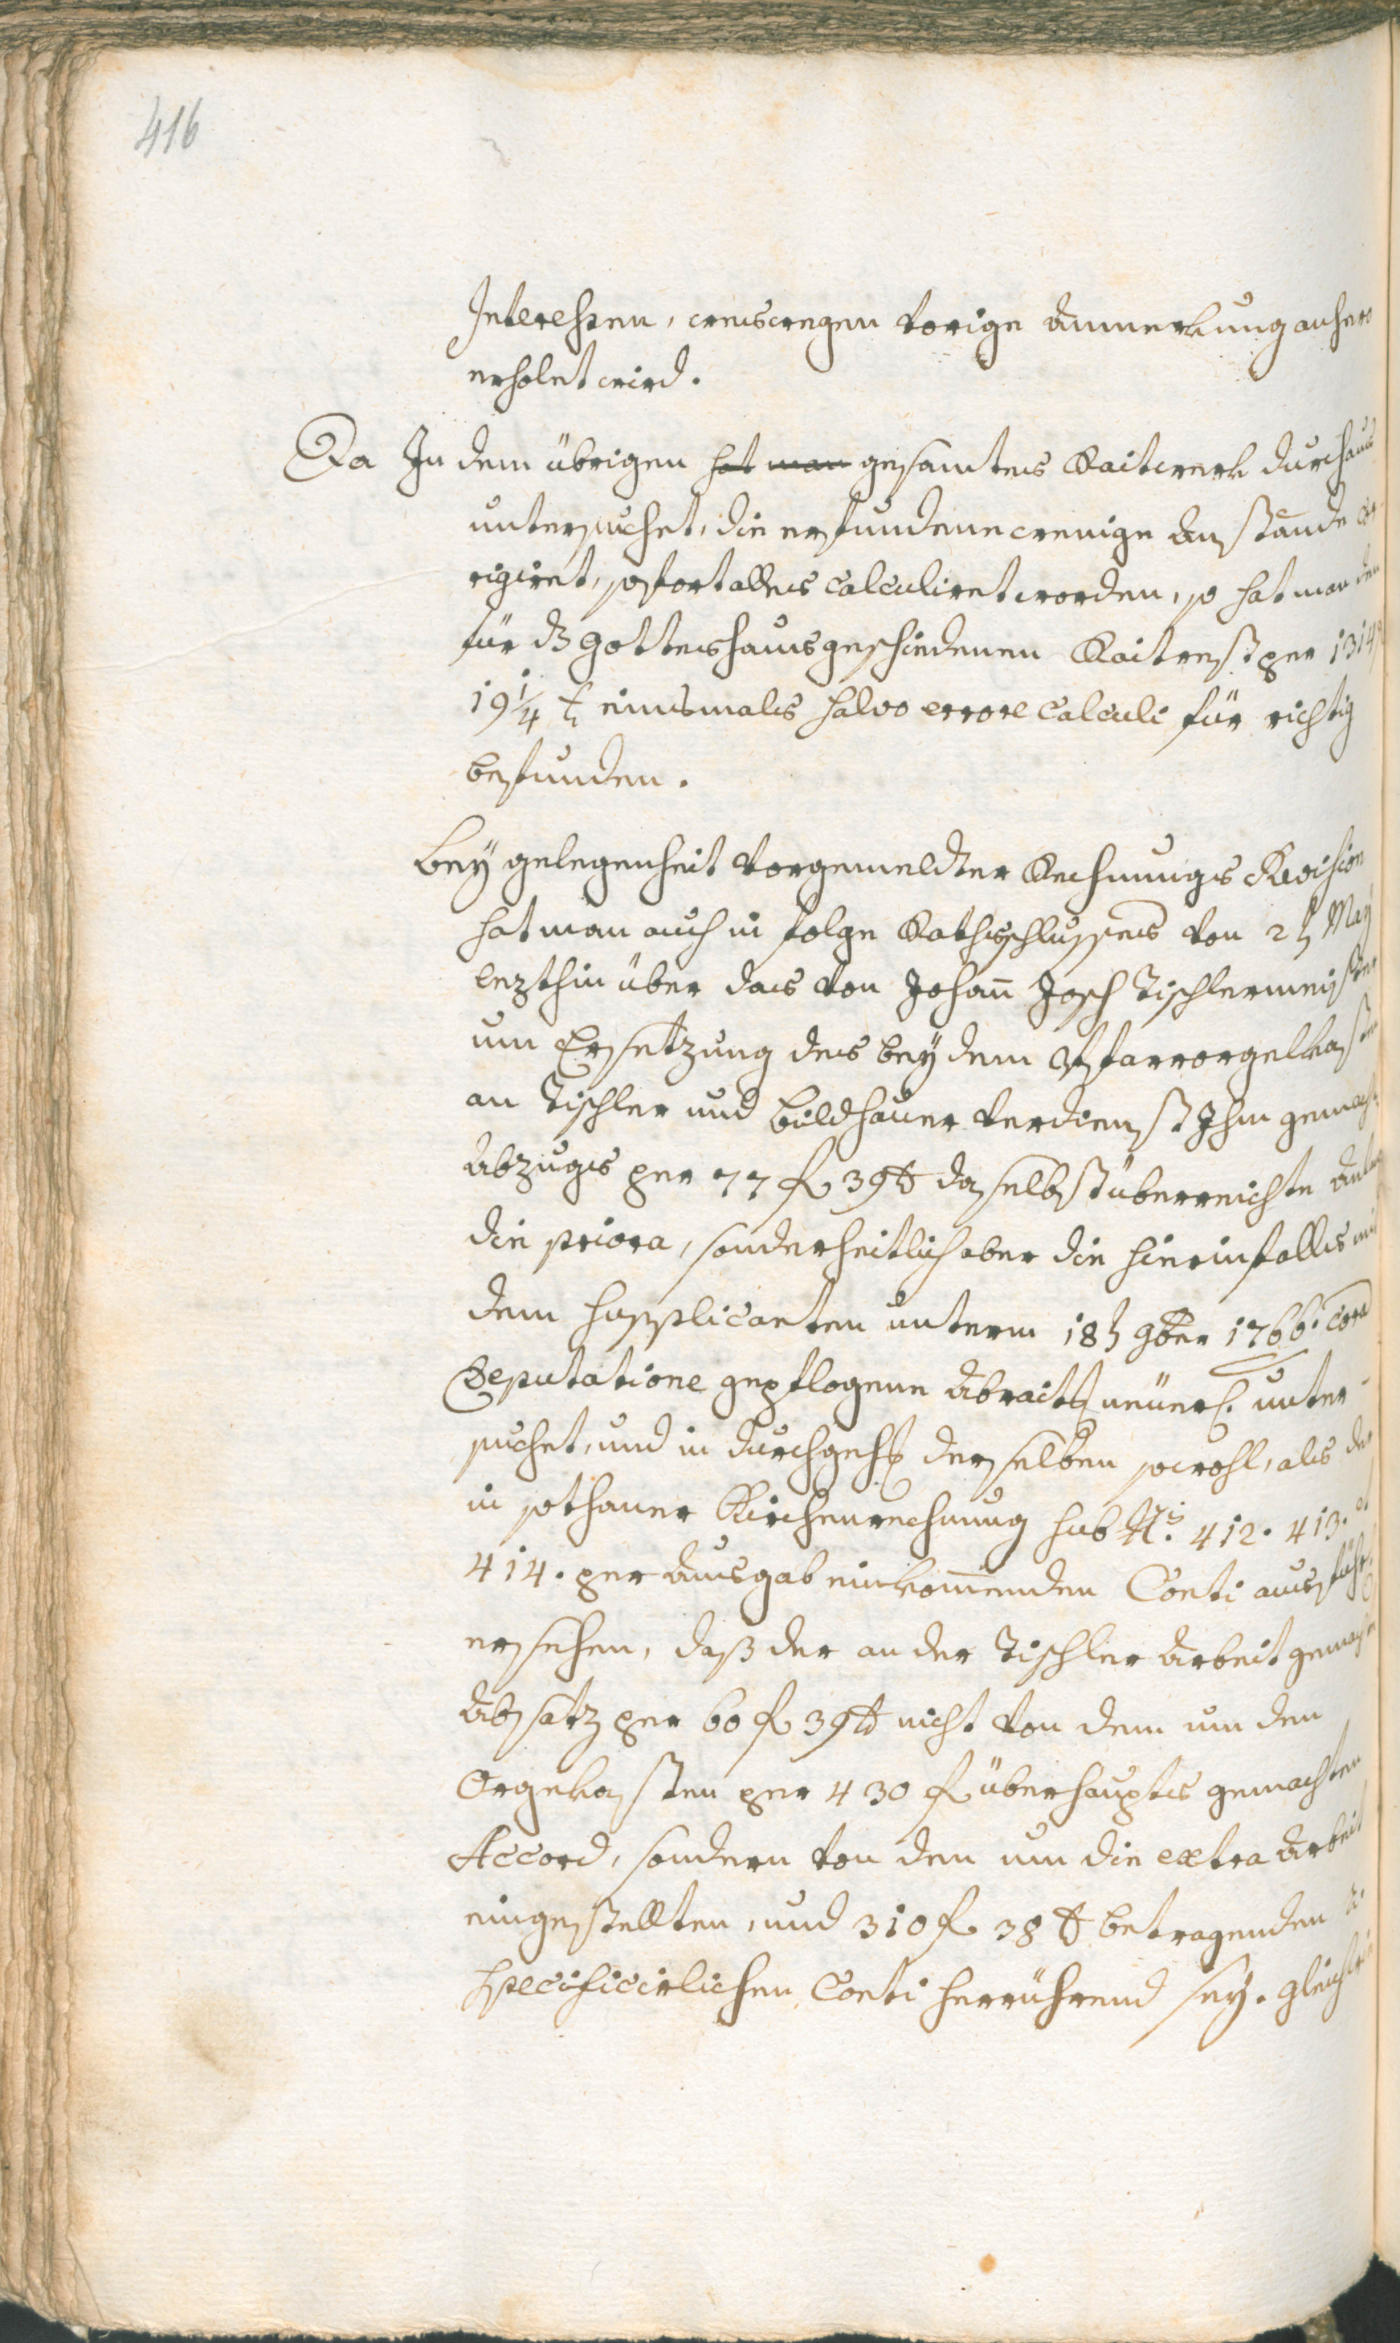 416
Interessen, weswegen vorige Anmerkung anhero
erholet wird.
Da In dem übrigen hat man gesamtes Raitwerk durchaus
untersuchet, die erfundene wenige Anstände cor
rigiret, sofort alles calculiret worden, so hat man den
für dz Gotteshaus geschiedenen Raitrest per 1314 f
19 1/4 x einsmals salvo errore calculi für richtig
befunden.
Bey gelegenheit vorgemeldter Rechnungs Revision
hat man auch in folge Rathsschlusses von 2t May
lezthin über das von Johann Josch Tischlermeister
um Ersetzung des bey dem Pfarrorgelkasten
an Tischler und Bildhauer Verdienst Ihm gemacht
Abzugs per 77 f 39 x daselbst überreichte
die priora, sonderheitlich aber die hierinfalls mit
dem supplicanten unterm 18t 9ber 1766. cora
Deputatione gepflogene Abraitg neüerl. unter-
suchet, und in durchgehg derselben sowohl, als der
in sothaner Kirchenrechnung sub No. 412. 413. et
414. per Ausgab einkommenden Conti ausführl.
ersehen, daß der an der Tischler Arbeit gemachte
Absatz per 60 f 39 x nicht von dem um den
Orgelkasten per 430 f überhaupts gemachten
Accord, sondern von den um die extra Arbeit
eingestellten, und 310 f 38 x betragenden
specificirlichen Conti herrührend sey. gleich